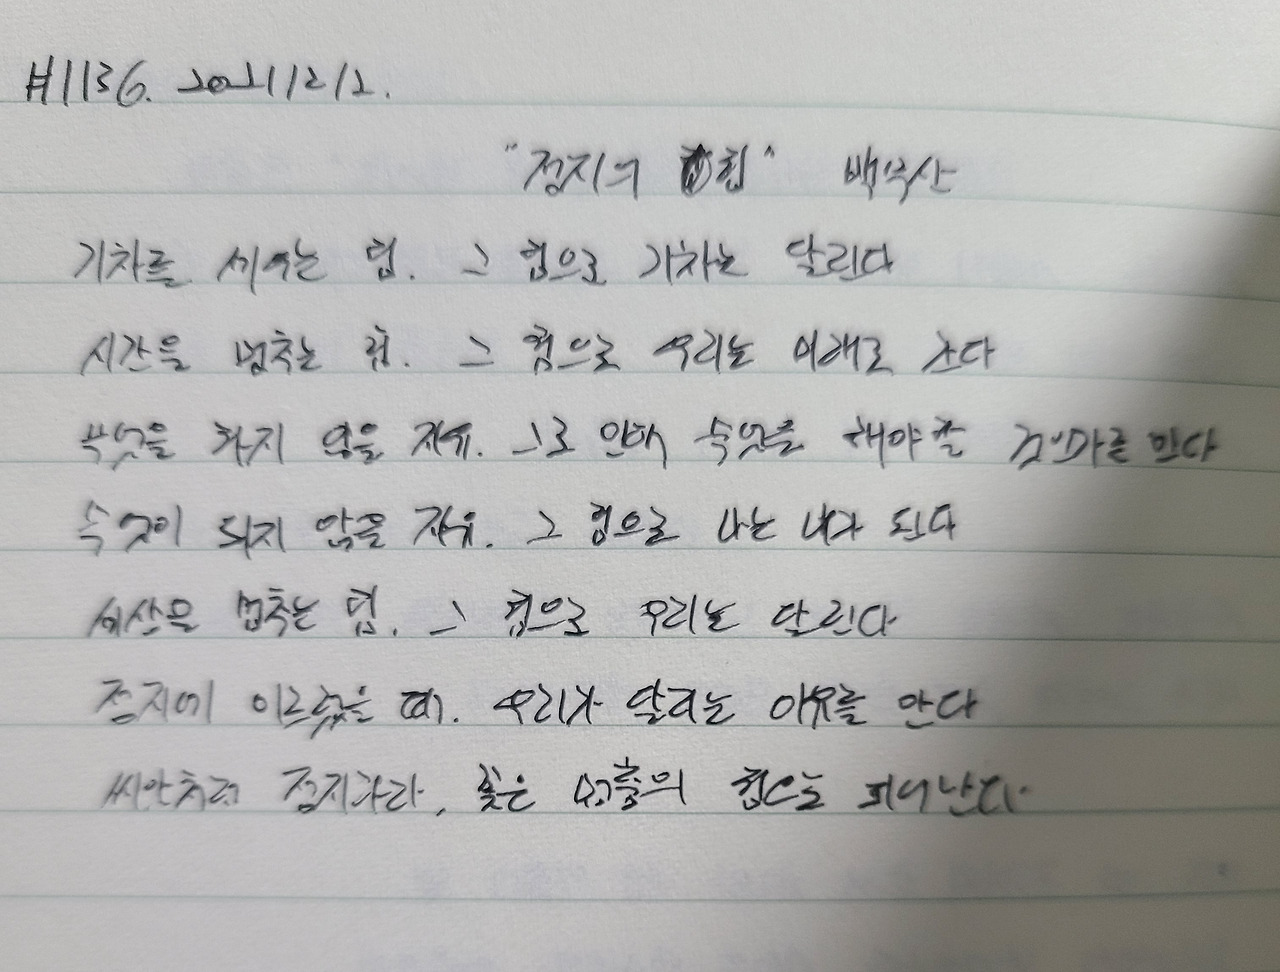 #1136. 2021/12/2.
"정지의 힘" 백무산
기차를 세우는 힘. 그 힘으로 기차는 달린다
시간을 멈추는 힘. 그 힘으로 우리는 미래로 간다
무엇을 하지 않을 자유. 그로 인해 무엇을 해야할 것인가를 안다
무엇이 되지 않을 자유. 그 힘으로 나는 내가 된다
세상을 멈추는 힘. 그 힘으로 우리는 달린다
정지에 이르렀을 때. 우리가 달리는 이유를 안다
씨앗처럼 정지하라, 꽃은 멈춤의 힘으로 피어난다.